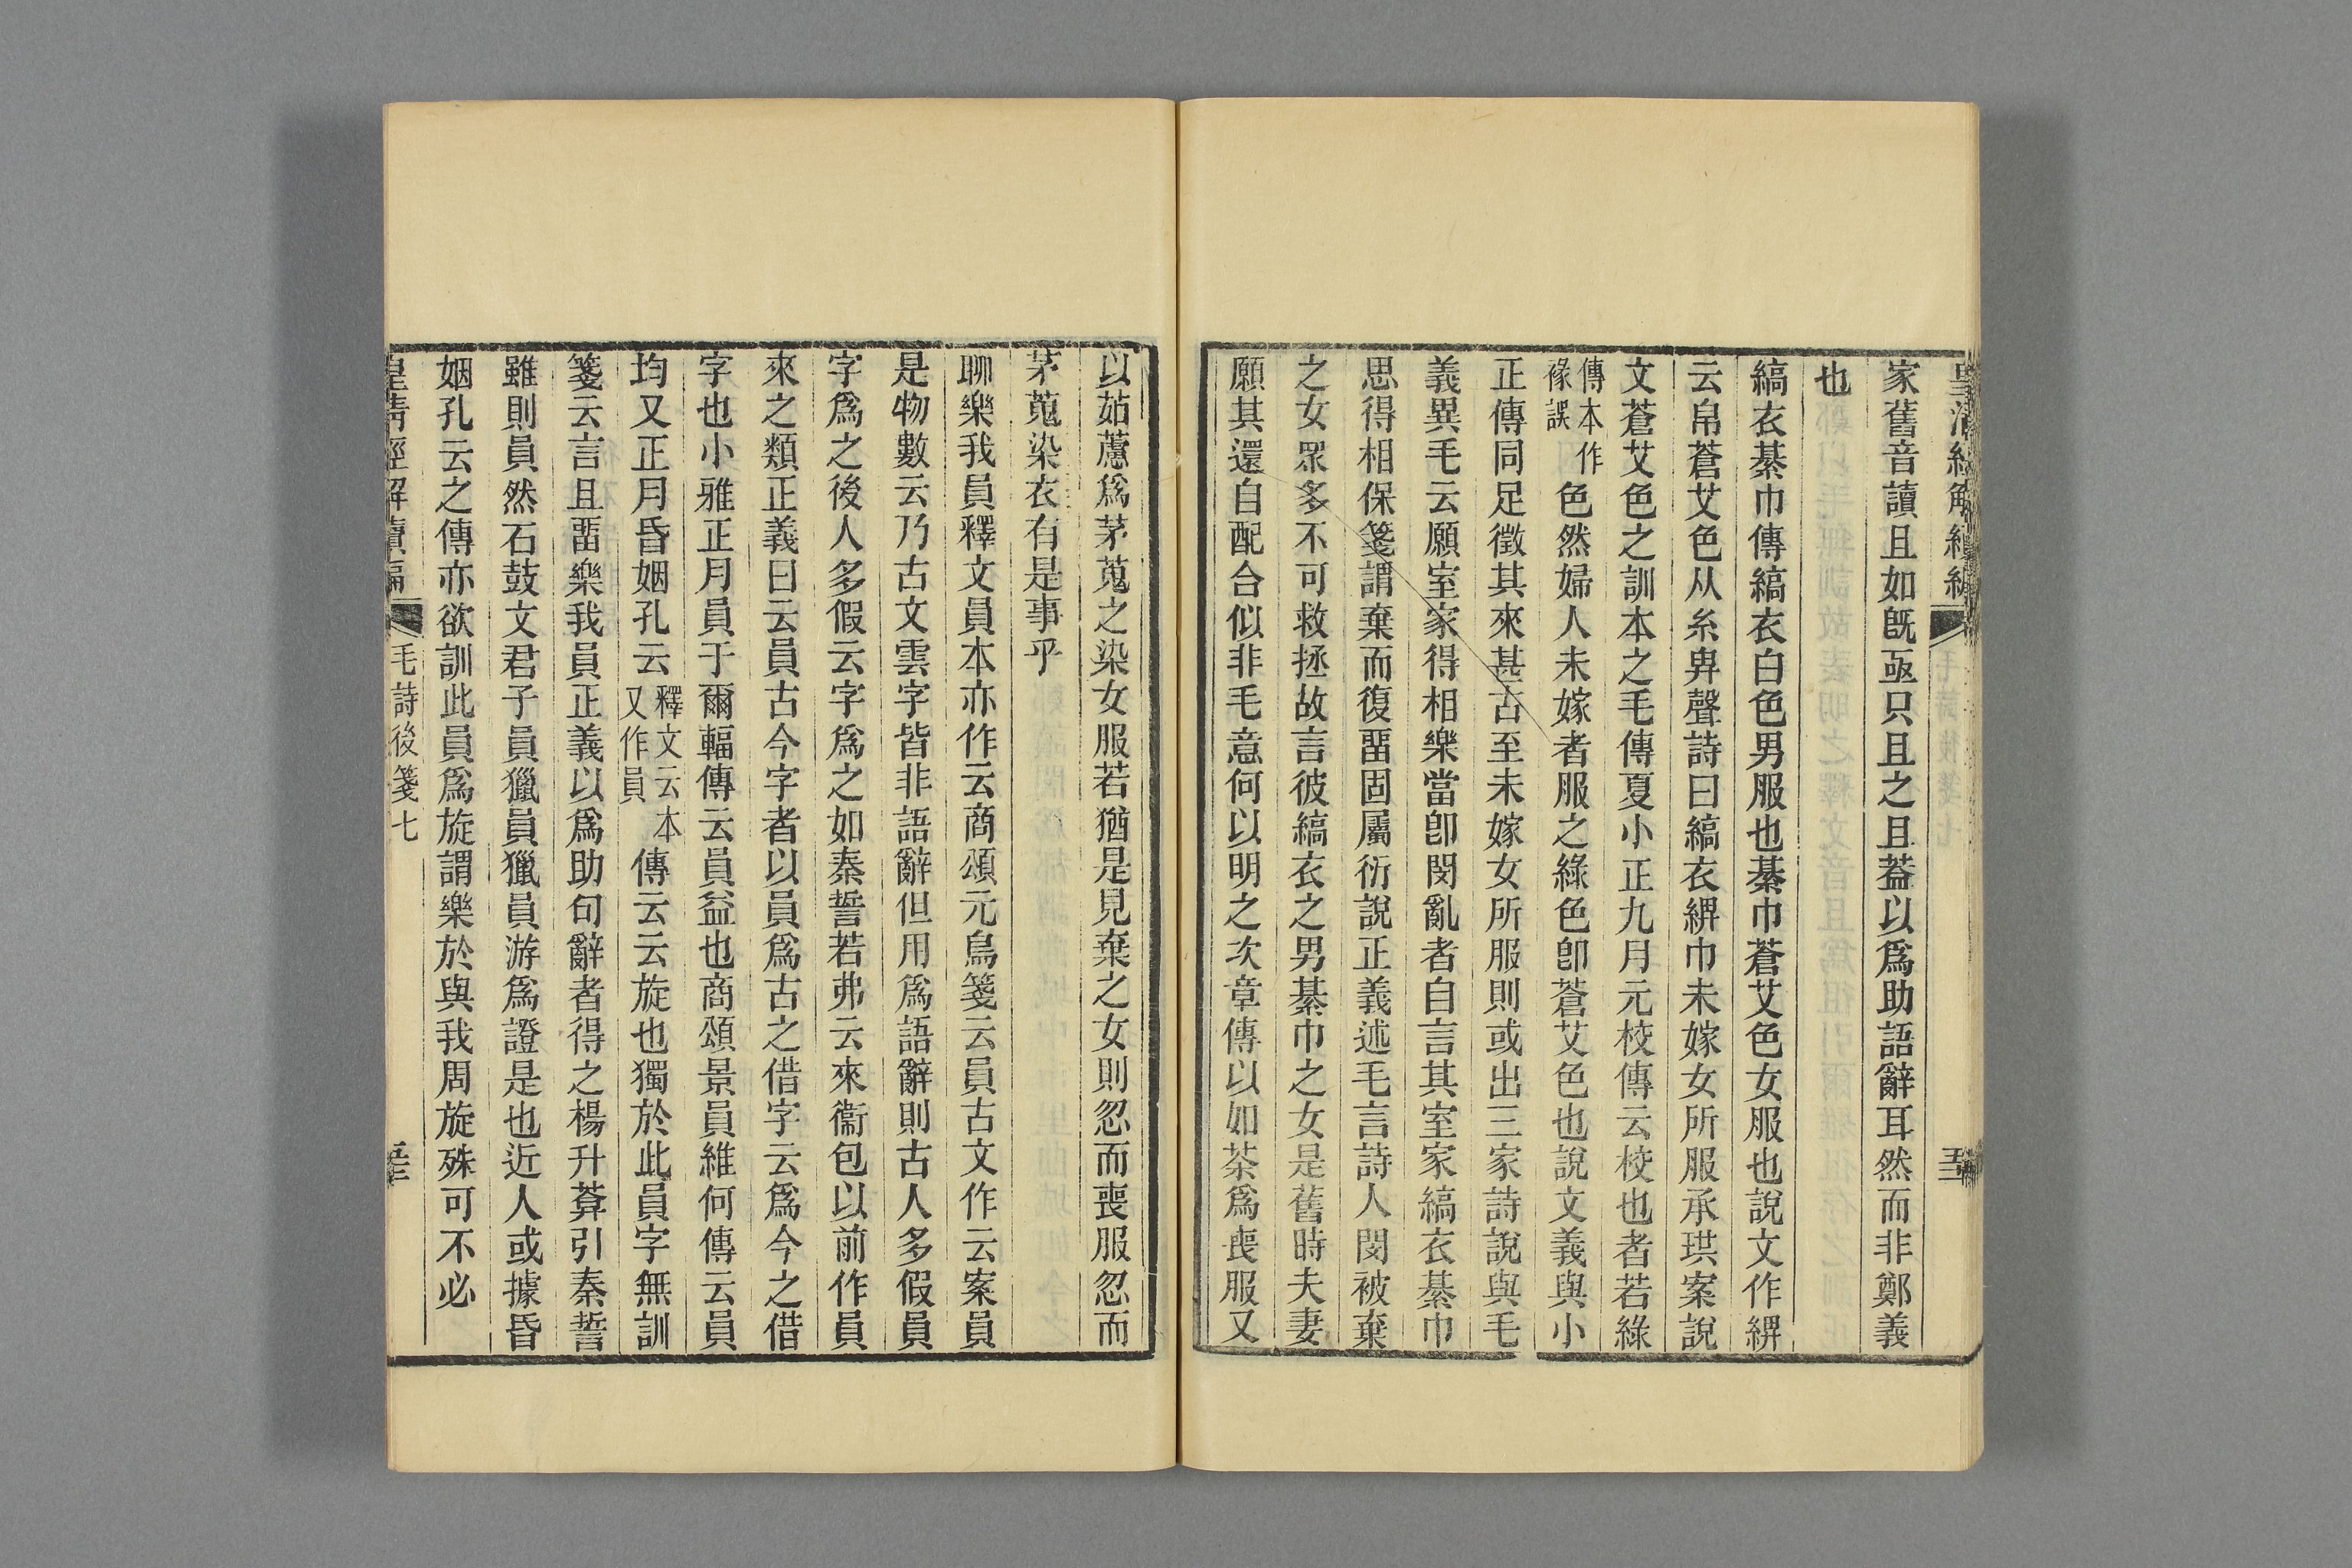 家舊音讀且如旣亟只且之且葢以爲助語辭耳然而非鄭義
也
縞衣綦巾傳縞衣白色男服也綦巾蒼艾色女服也說文作綥
云帛蒼艾色从糸畀聲詩曰縞衣綥巾未嫁女所服承珙案說
文蒼艾色之訓本之毛傳夏小正九月元校傳云校也者若綠
傳本作
褖誤
色然婦人未嫁者服之綠色卽蒼艾色也說文義與小
正傳同足徵其來甚古至未嫁女所服則或出三家詩說與毛
義異毛云願室家得相樂當卽閔亂者自言其室家縞衣綦巾
思得相保箋謂棄而復畱固屬衍說正義述毛言詩人閔被棄
之女眾多不可救拯故言彼縞衣之男綦巾之女是舊時夫妻
願其還自配合似非毛意何以明之次章傳以如荼爲喪服又
以茹藘爲茅蒐之染女服若猶是見棄之女則忽而喪服忽而
茅蒐染衣有是事乎
聊樂我員釋文員本亦作云商頌元鳥箋云員古文作云案員
是物數云乃古文雲字皆非語辭但用爲語辭則古人多假員
字爲之後人多假云字爲之如秦誓若弗云來衞包以前作員
來之類正義曰云員古今字者以員爲古之借字云爲今之借
字也小雅正月員于爾輻傳云員益也商頌景員維何傳云員
均又正月昏姻孔云
釋文云本
又作員
傳云云旋也獨於此員字無訓
箋云言且畱樂我員正義以爲助句辭者得之楊升葊引秦誓
雖則員然石鼓文君子員獵員獵員游爲證是也近人或據昏
姻孔云之傳亦欲訓此員爲旋謂樂於與我周旋殊可不必
皇清經解續編
毛詩後箋七